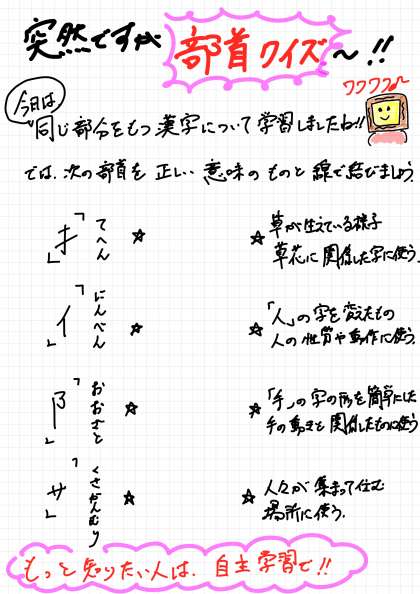 突然ですが 部首クイズ〜!!
ワクワク♪
今日は、
同じ部分をもつ漢字について学習しましたね!!
では、次の部首を正しい意味のものと線で結びましょう。
「扌」てへん ☆
☆ 草が生えている様子
草花に関係した字に使う。
「亻」にんべん ☆
☆ 「人」の字を変えたもの
人の性質や動作に使う。
「阝」おおざと ☆
☆ 「手」の字の形を簡単にした
手の動きと関係したものに使う
「艹」くさかんむり ☆
☆ 人々が集まって住む
場所に使う。
もっと知りたい人は、自主学習で!!